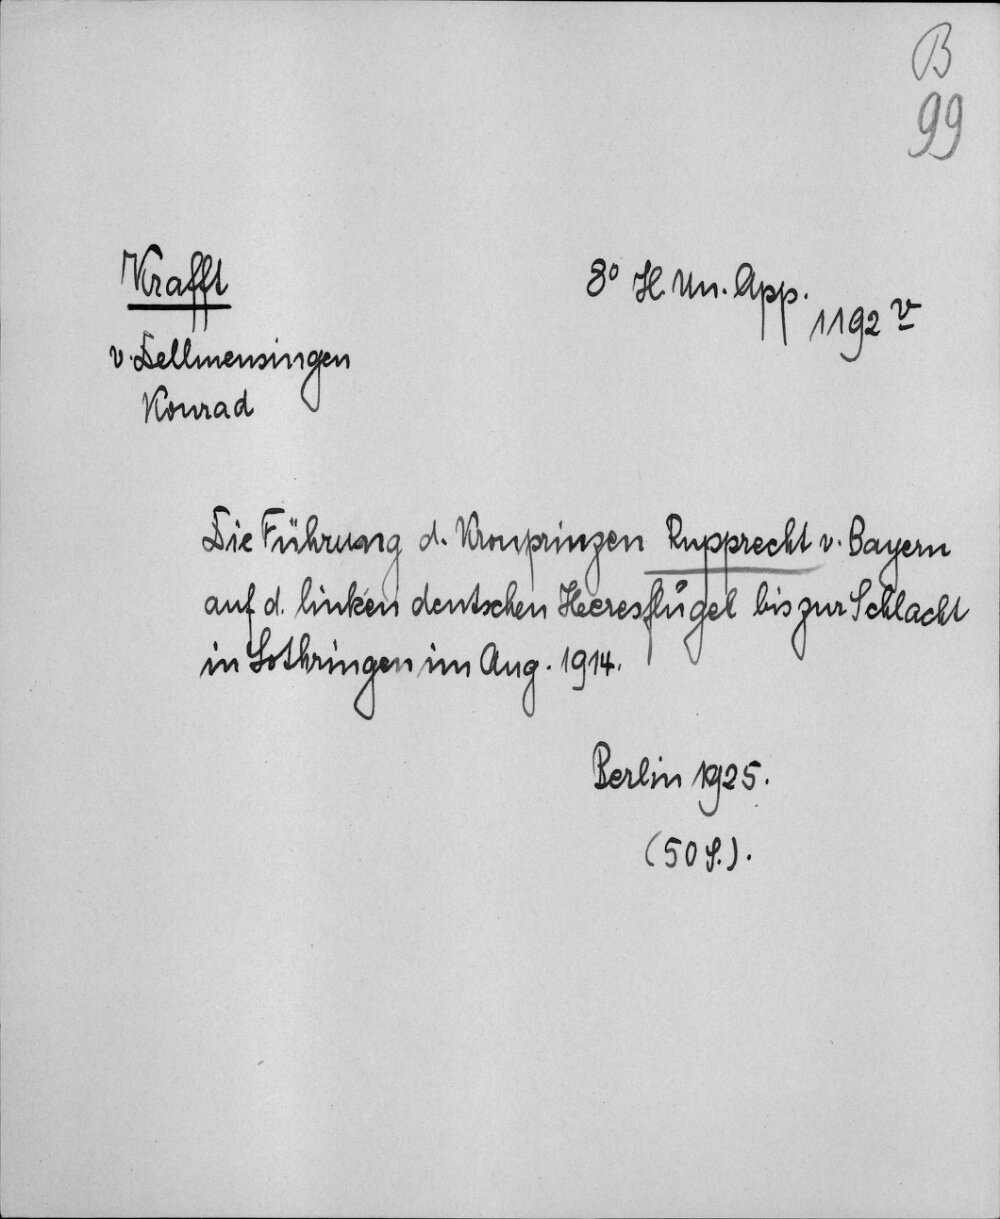 B
99
Krafft
8° H. Un. App.
1192 v
v. Dellmensingen
Konrad
Die Führung d. Kronprinzen Rupprecht v. Bayern
auf d. linken deutschen Heeresflügel bis zur Schlacht
in Lothringen im Aug. 1914.
Berlin 1925.
(50 S.).